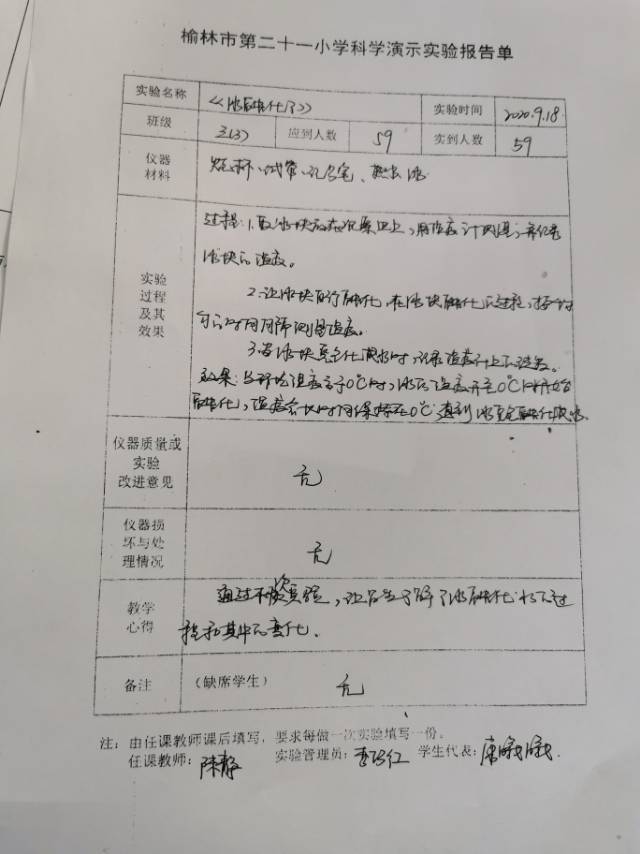 榆林市第二十一小学科学演示实验报告单
实验名称 《冰融化了》 实验时间 2020.9.18
班级 三(3) 应到人数 59 实到人数 59
仪器
材料
烧杯、试管、 热水 冰
实验
过程
及其
效果
过程:1.取冰块放在 桌面上,用温度计测量,并记录
冰块的温度。
2.让冰块自行融化,在冰块融化的过程,
的时间间隔测量温度。
3.当冰块完全化成水时,记录温度计上的读数。
效果:当环境温度高于0℃时,冰的温度升至0℃时开始
融化,温度会长时间保持在0℃ 直到冰完全融化成水.
仪器质量或
实验
改进意见
无
仪器损
坏与处
理情况
无
教学
心得
通过 实验,让学生了解了冰融化 水的过
程和其中的变化.
备注 (缺席学生) 无
注:由任课教师课后填写,要求每做一次实验填写一份。
任课教师:陈静 实验管理员: 学生代表: